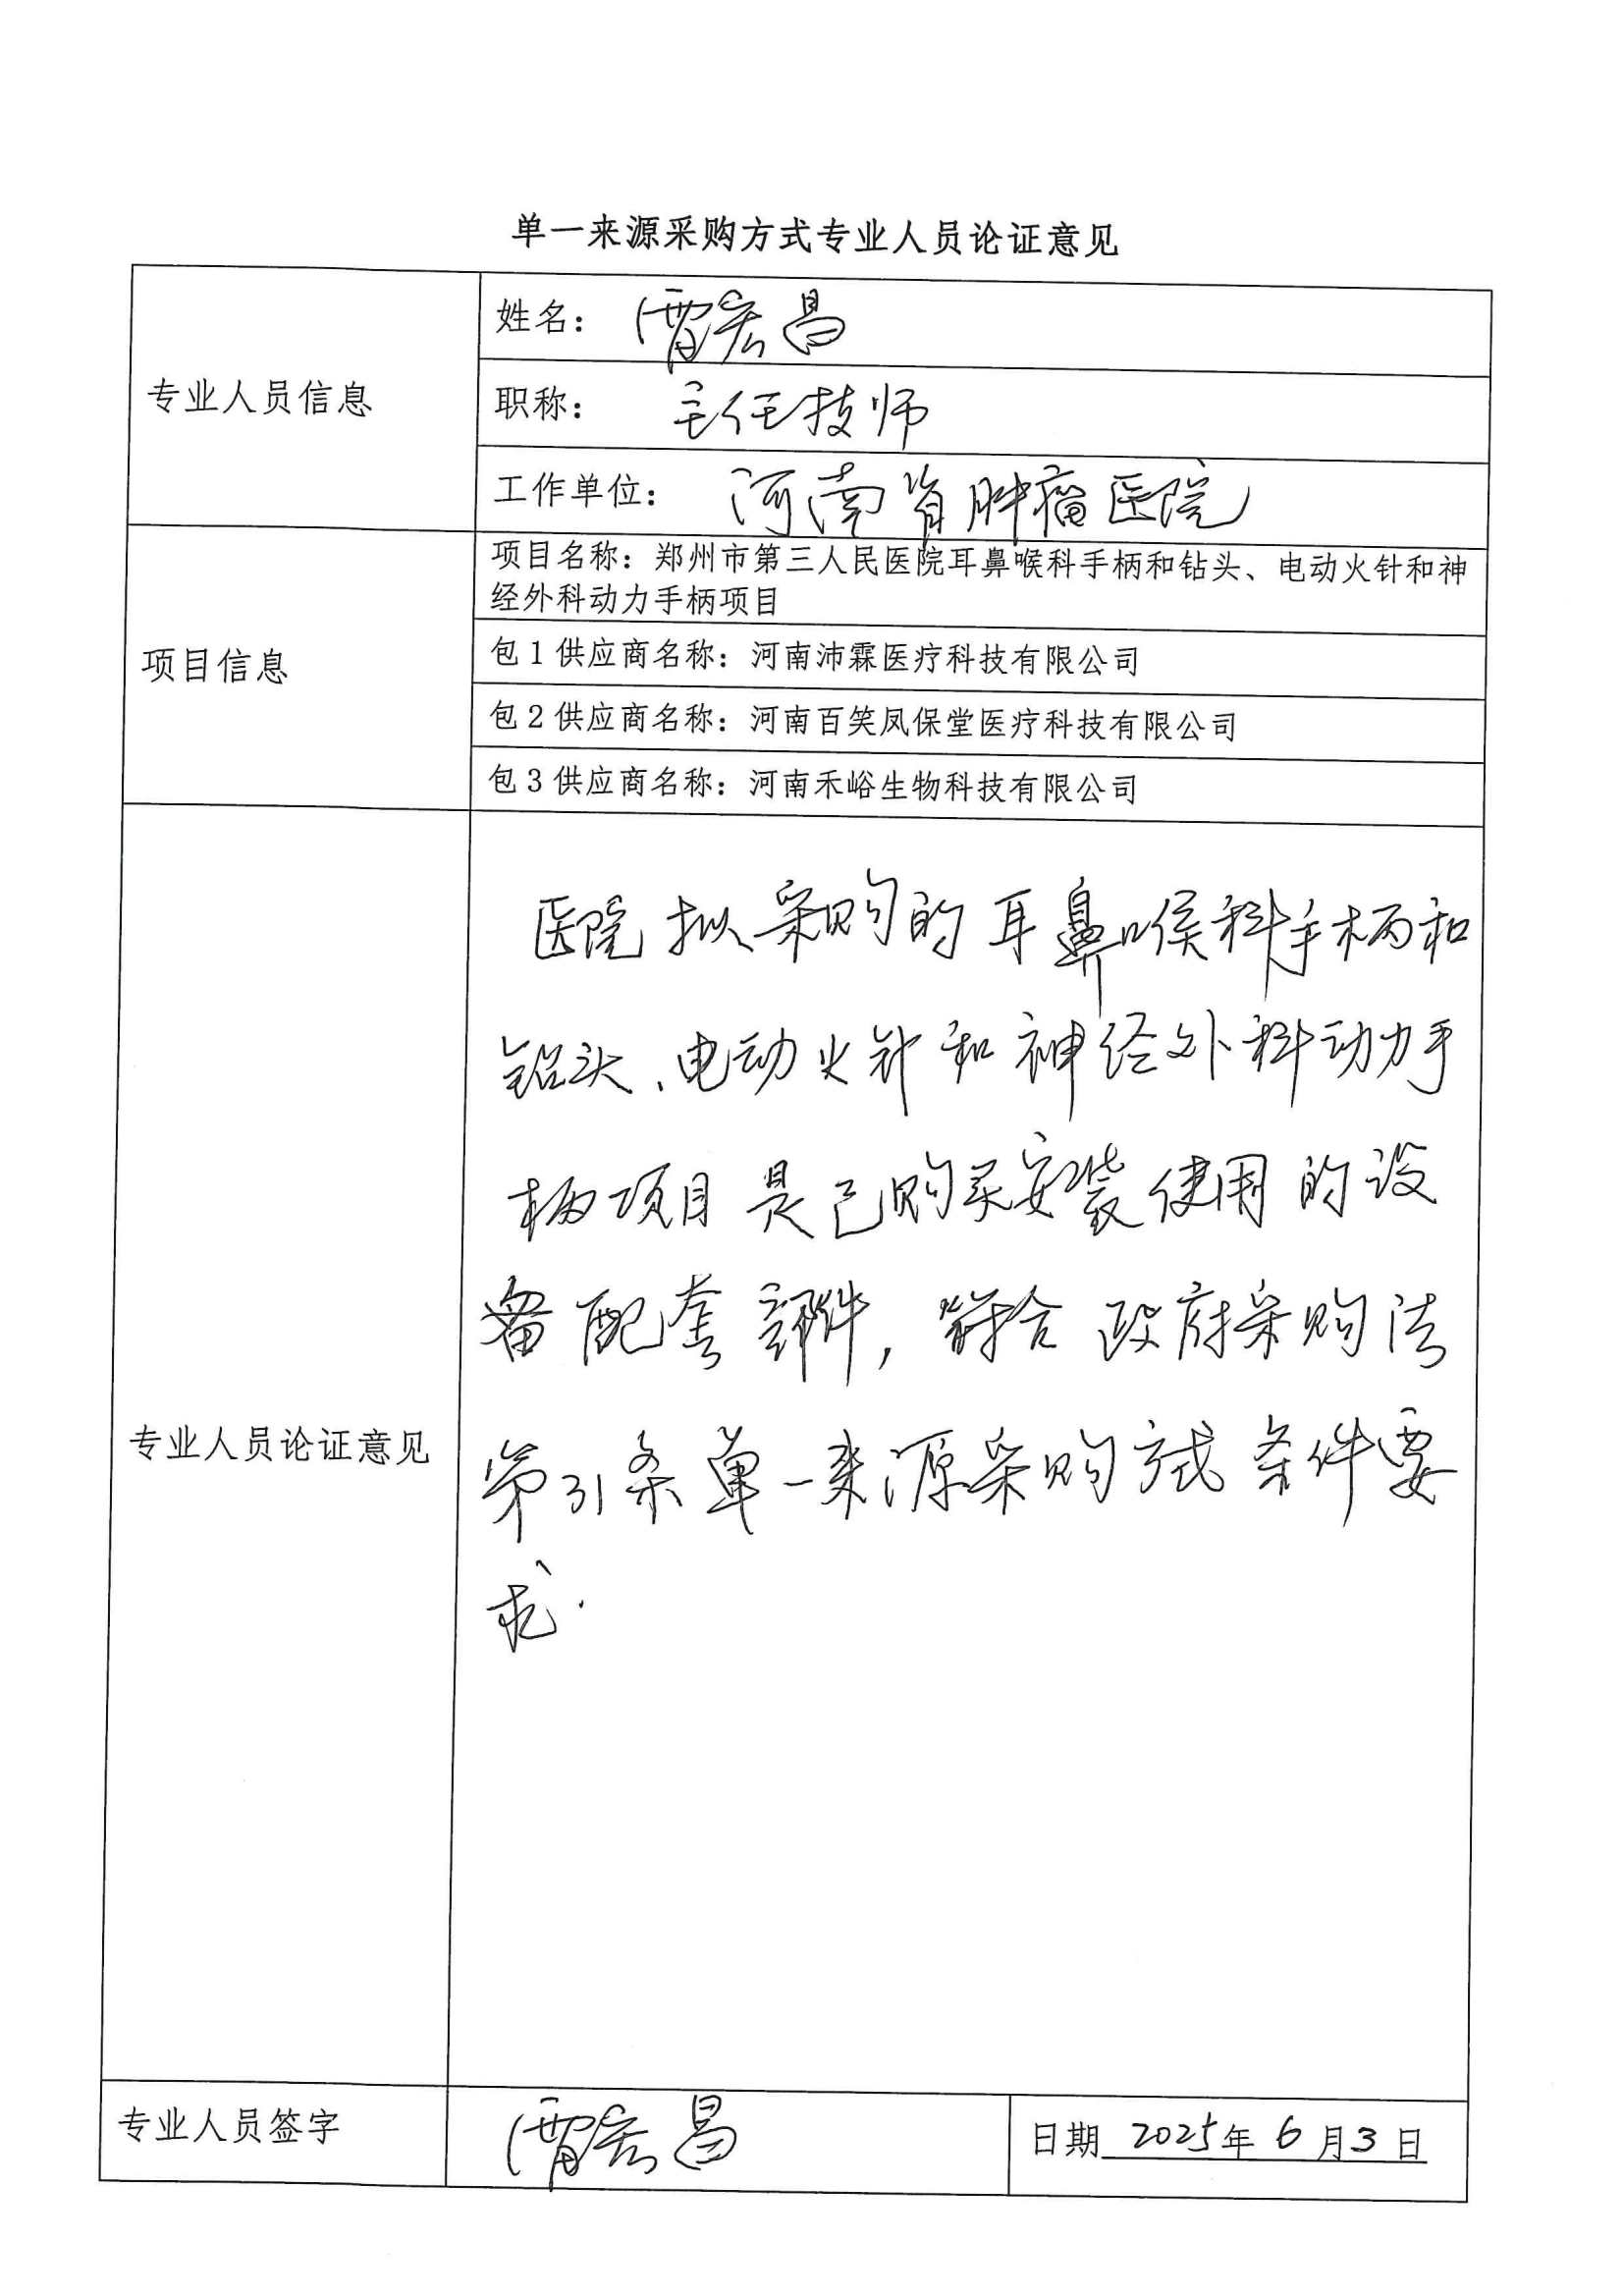 单一来源采购方式专业人员论证意见
专业人员信息
姓名: 宏昌
职称: 主任技师
工作单位: 河南省肿瘤医院
项目信息
项目名称: 郑州市第三人民医院耳鼻喉科手柄和钻头、电动火针和神
经外科动力手柄项目
包1供应商名称: 河南沛霖医疗科技有限公司
包2供应商名称: 河南百笑凤保堂医疗科技有限公司
包3供应商名称: 河南禾峪生物科技有限公司
专业人员论证意见
医院拟采购的耳鼻喉科手柄和
钻头、电动火针和神经外科动力手
柄项目是已购买安装使用的设
备配套部件,符合政府采购法
第31条单一来源采购方式条件要
求.
专业人员签字
宏昌
日期 2025年6月3日